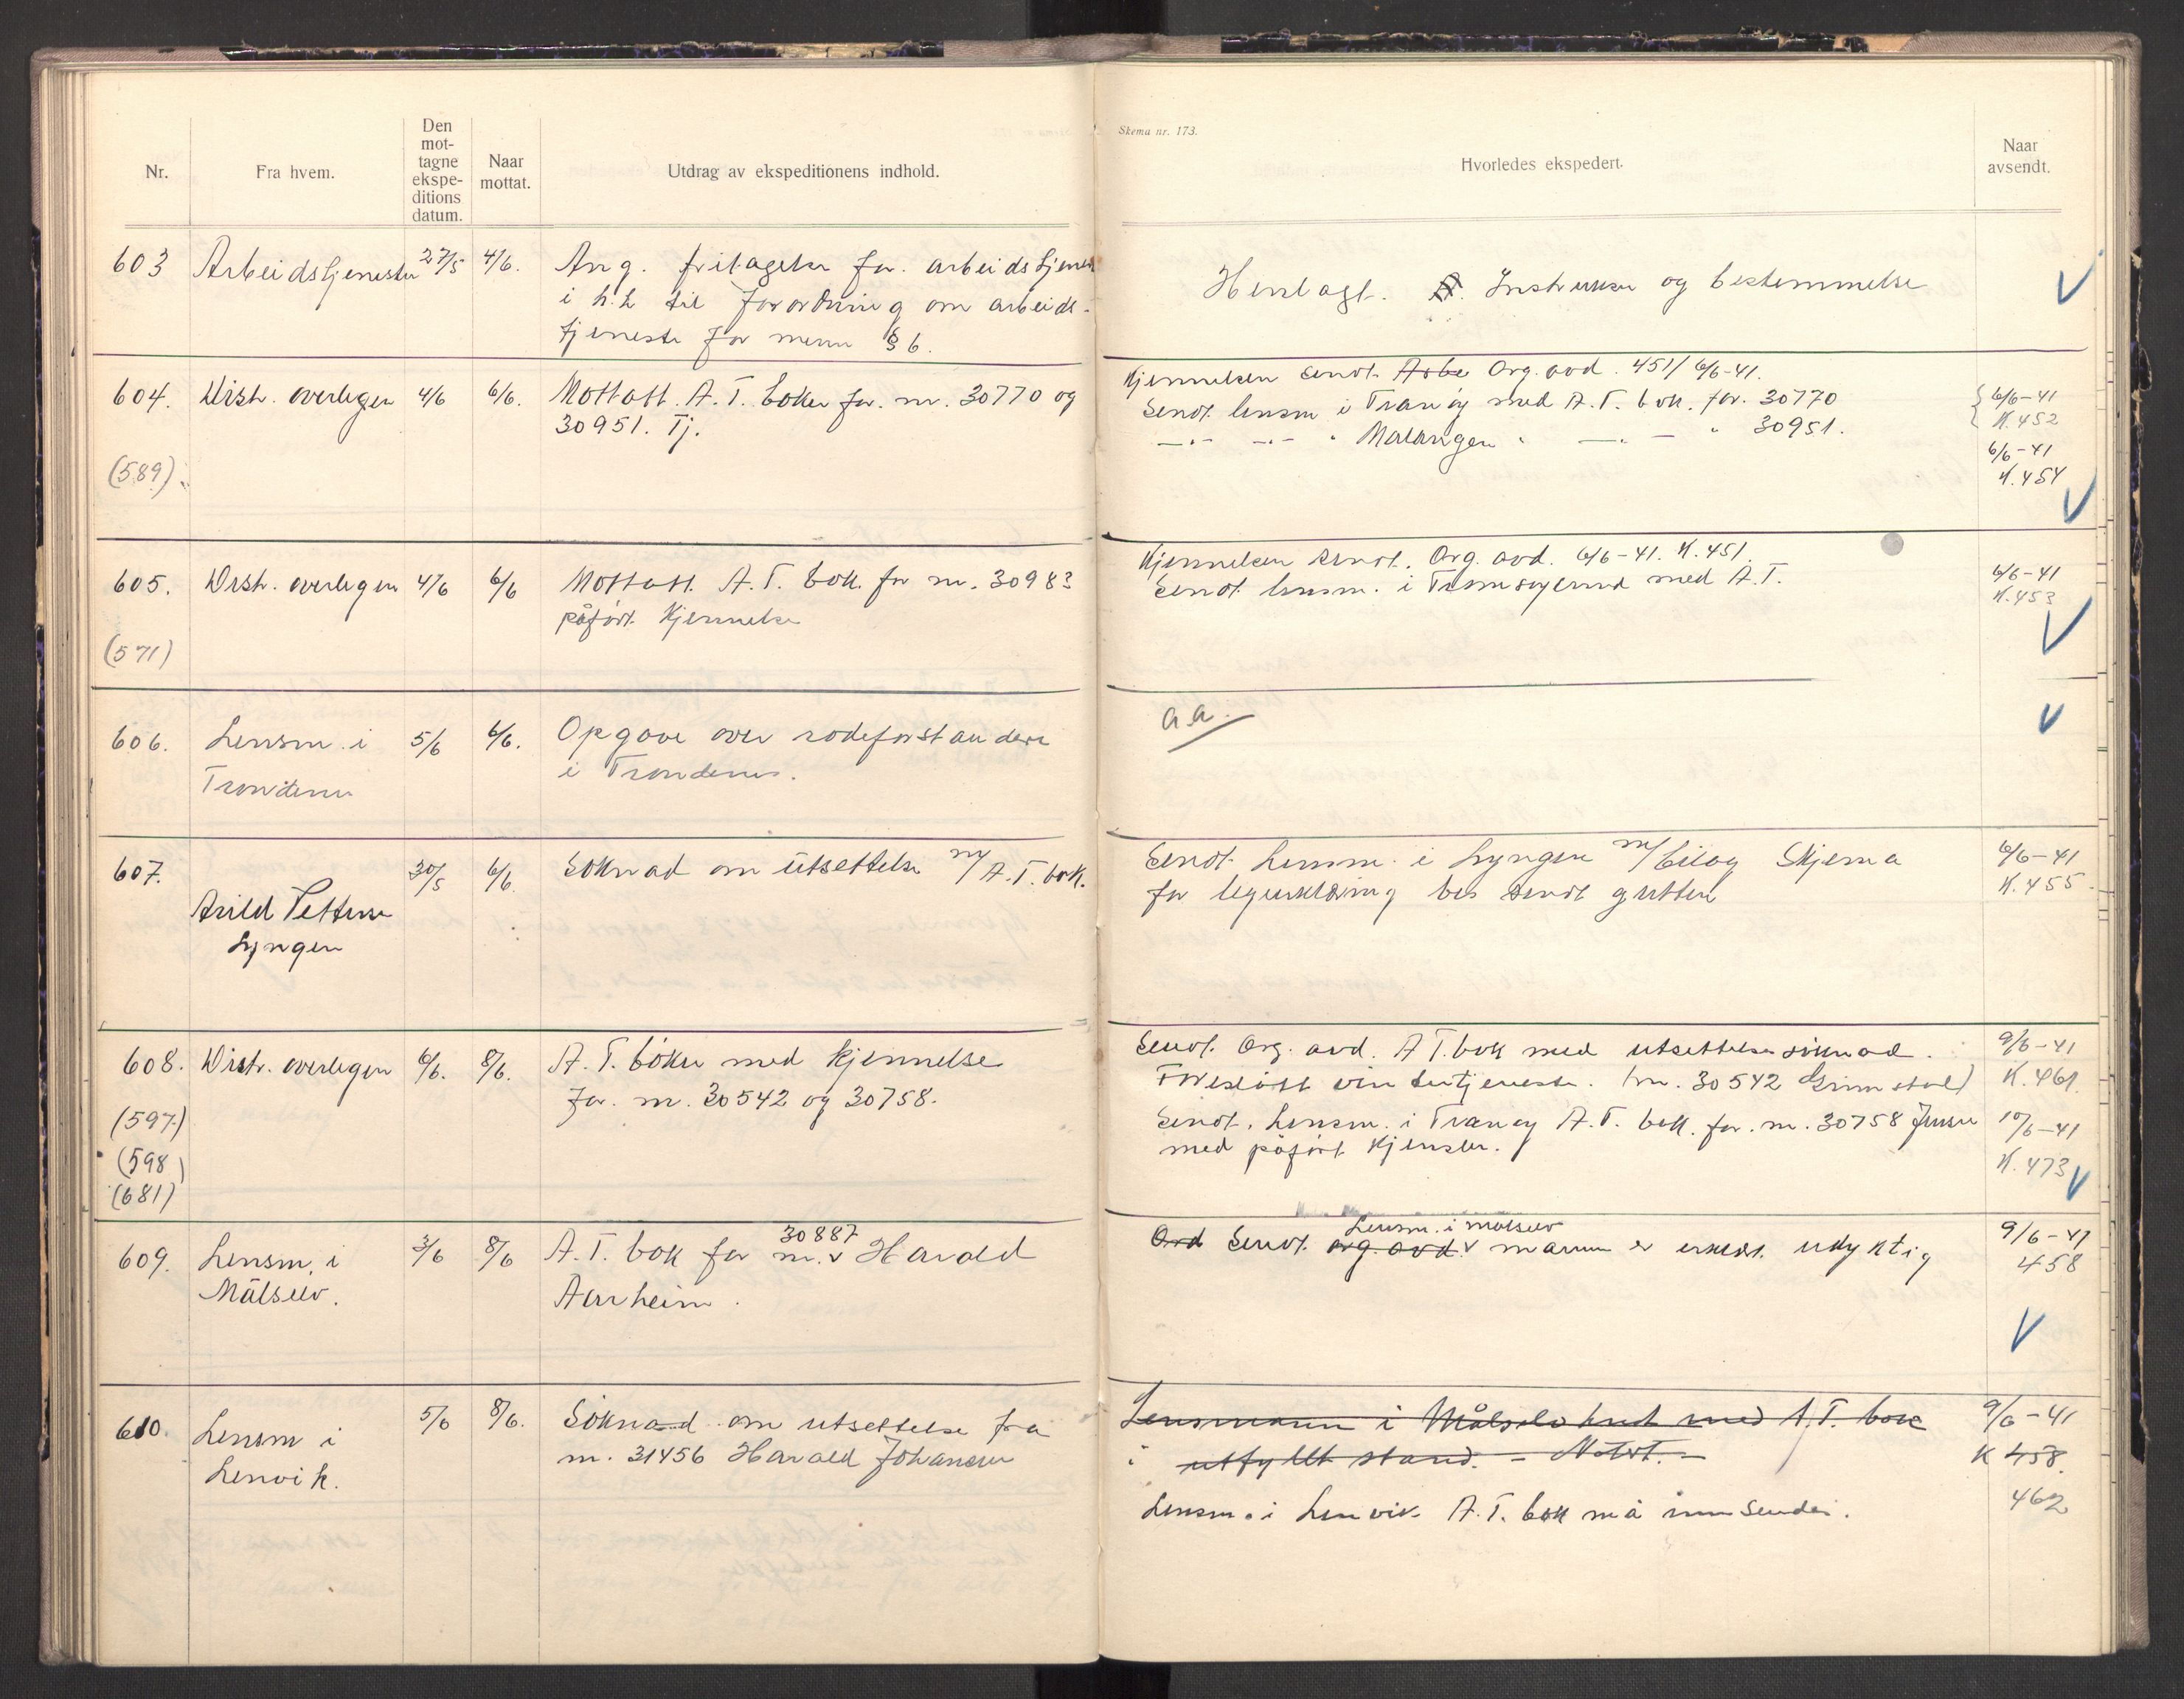 Nr.
Fra hvem.
Den
mot-
tagne
ekspe-
ditions
datum.
Naar
mottat.
Utdrag av ekspeditionens indhold.
Skema nr. 173.
Hvorledes ekspedert.
Naar
avsendt.
603 Arbeidstjenesten 27/5 4/6. Ang. fritagelse for arbeidstjeneste
i h.t til forordning om arbeids-
tjeneste for menn § 6.
Henlagt. Instrukser og bestemmelse
604. Distr. overlegen 4/6 6/6. Mottatt A.T. bøker for nr. 30770 og
30951. Tj.
(589)
Kjennelsen sendt Arbe Org. avd. 451/ 6/6-41.
Sendt lensm i Tranøy med A.T. bok for 30770
—"— —"— " Malangen " —"— " 30951.
6/6-41
K.452
6/6-41
K.454
605. Distr. overlegen 4/6 6/6 Mottatt A.T. bok for nr. 30983
påført kjennelse
(571)
Kjennelsen sendt. Org. avd. 6/6-41. K.451.
Sendt lensm. i Tromsøysund med A.T.
6/6-41
K.453
606. Lensm. i 5/6 6/6. Opgave over rodeforstandere
Trondenes i Trondenes.
a.a.
607. 30/5 6/6 Søknad om utsettelse m/ A.T. bok.
Arild Pettersen
Lyngen
Sendt Lensm. i Lyngen m/ bilag Skjema
for legeerklæring bes sendt gutten
6/6-41
K.455.
608. Distr. overlegen 6/6. 8/6. A.T. bøker med kjennelse
for nr. 30542 og 30758.
(597)
(598)
(681)
Sendt Org. avd. A T. bok med utsettelsessøknad.
Foreslått vintertjeneste. (nr. 30542 Grimstad)
Sendt. Lensm. i Tranøy A.T. bok for nr. 30758 Jensen
med påført kjenslen.
9/6-41
K.461.
10/6-41
K.473
609. Lensm. i 3/6 8/6 A.T. bok for nr. 30887 Harald
Målselv. Aarheim.
Ord Sendt org. avd. Lensm. i Målselv mannen er erklært udyktig
9/6-41
458
610. Lensm i 5/6 8/6. Søknad om utsettelse fra
Lenvik. nr. 31456 Harald Johansen
Lensmann i Målselv med A.T. bok
i utfyllt stand. - Notert. -
Lensm. i Lenvik A.T. bok må innsendes.
9/6-41
K 458.
462